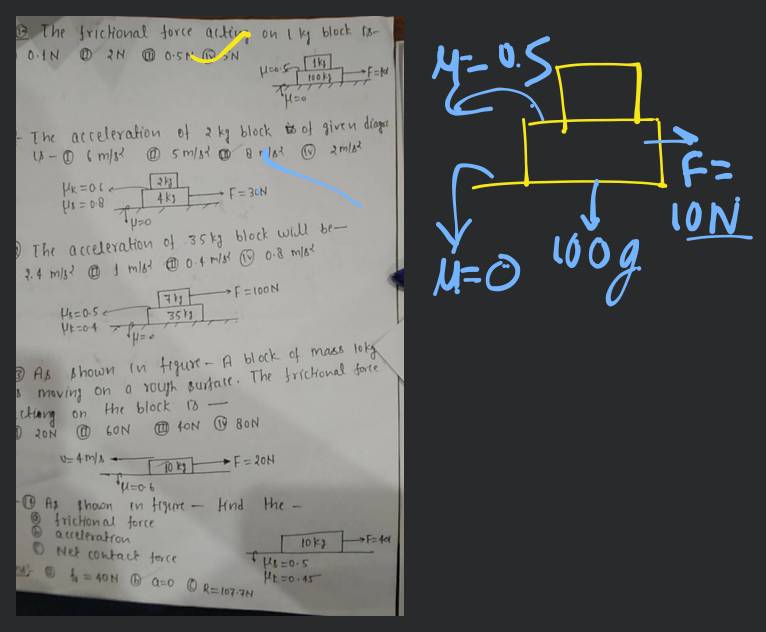 The frictional force acting on 1 kg block is-
0.1N (ii) 2N (iii) 0.5N (iv) 5N
1kg
μ=0.5
100kg
μ=0
The acceleration of 2 kg block is of given diagra
is - (i) 6 m/s² (ii) 5 m/s² (iii) 8 m/s² (iv) 2 m/s²
μk = 0.6
μs = 0.8
2kg
4kg
F = 30N
μ=0
The acceleration of 35 kg block will be-
2.4 m/s² (ii) 1 m/s² (iii) 0.4 m/s² (iv) 0.8 m/s²
7kg
F = 100N
μs = 0.5
μk = 0.4
35kg
μ=0
As shown in figure - A block of mass 10kg
moving on a rough surface. The frictional force
cting on the block is —
20N (ii) 60N (iii) 40N (iv) 80N
v = 4 m/s
10 kg
F = 20N
μ=0.6
(14) As shown in figure - find the -
(a) frictional force
(b) acceleration
(c) Net contact force
10kg
μs = 0.5
μk = 0.45
(a) fs = 40N (b) a=0 (c) R = 107.7N
μ = 0.5
F =
10N
μ=0
100g